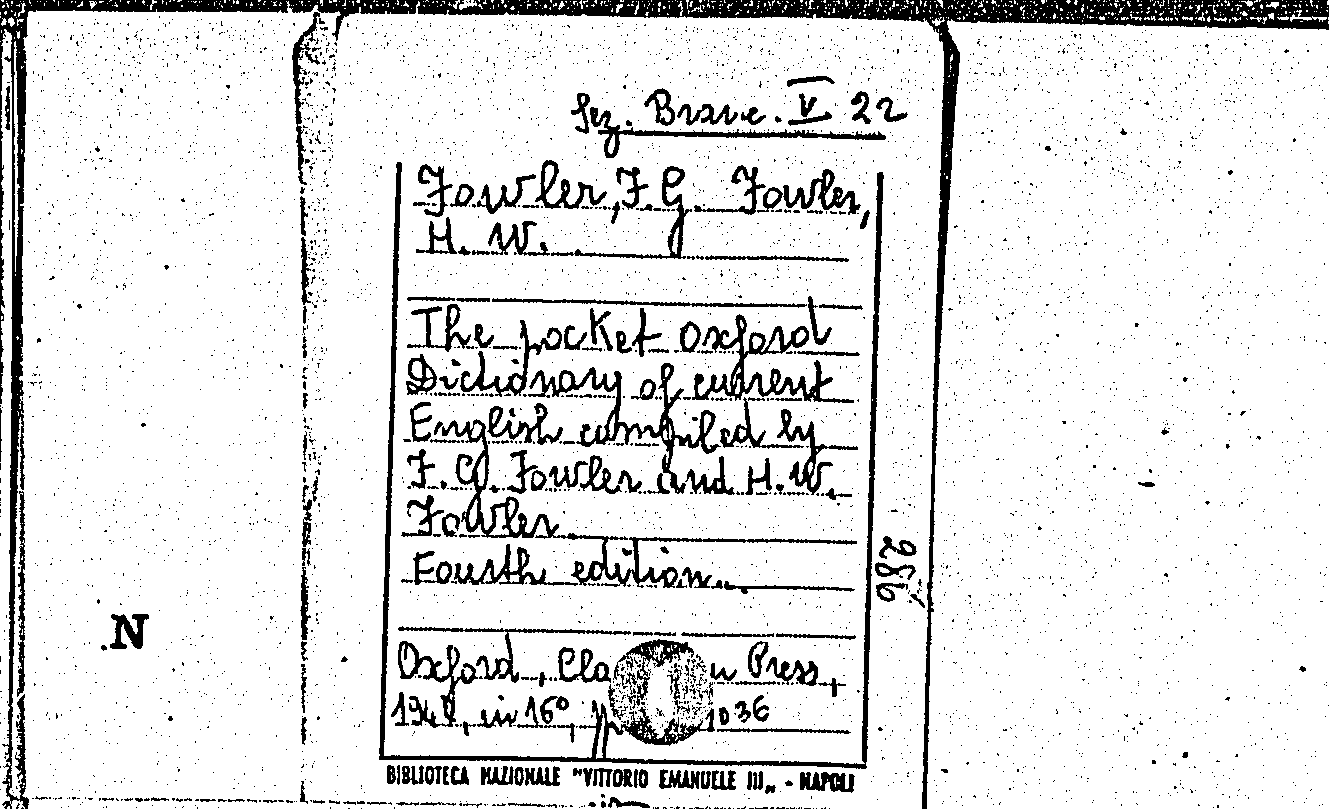 Sez. Branc. V 22
Fowler, F. G. Fowler,
H. W.
The pocket Oxford
Dictionary of current
English compiled by
F. G. Fowler and H. W.
Fowler.
Fourth edition..
986
N
Oxford, Cla n Press,
in 16°, 1036
BIBLIOTECA NAZIONALE "VITTORIO EMANUELE III„ - NAPOLI